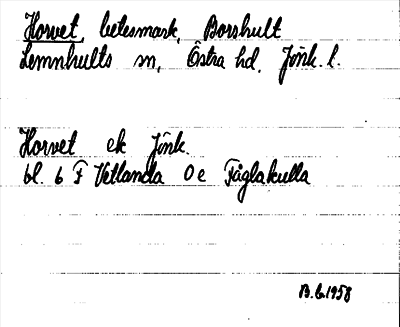 Horvet, betesmark, Borshult
Lemnhults sn, Östra hd, Jönk. l.
Horvet ek Jönk.
bl. 6 F Vetlanda 0 e Fåglakulla
B.G. 1958